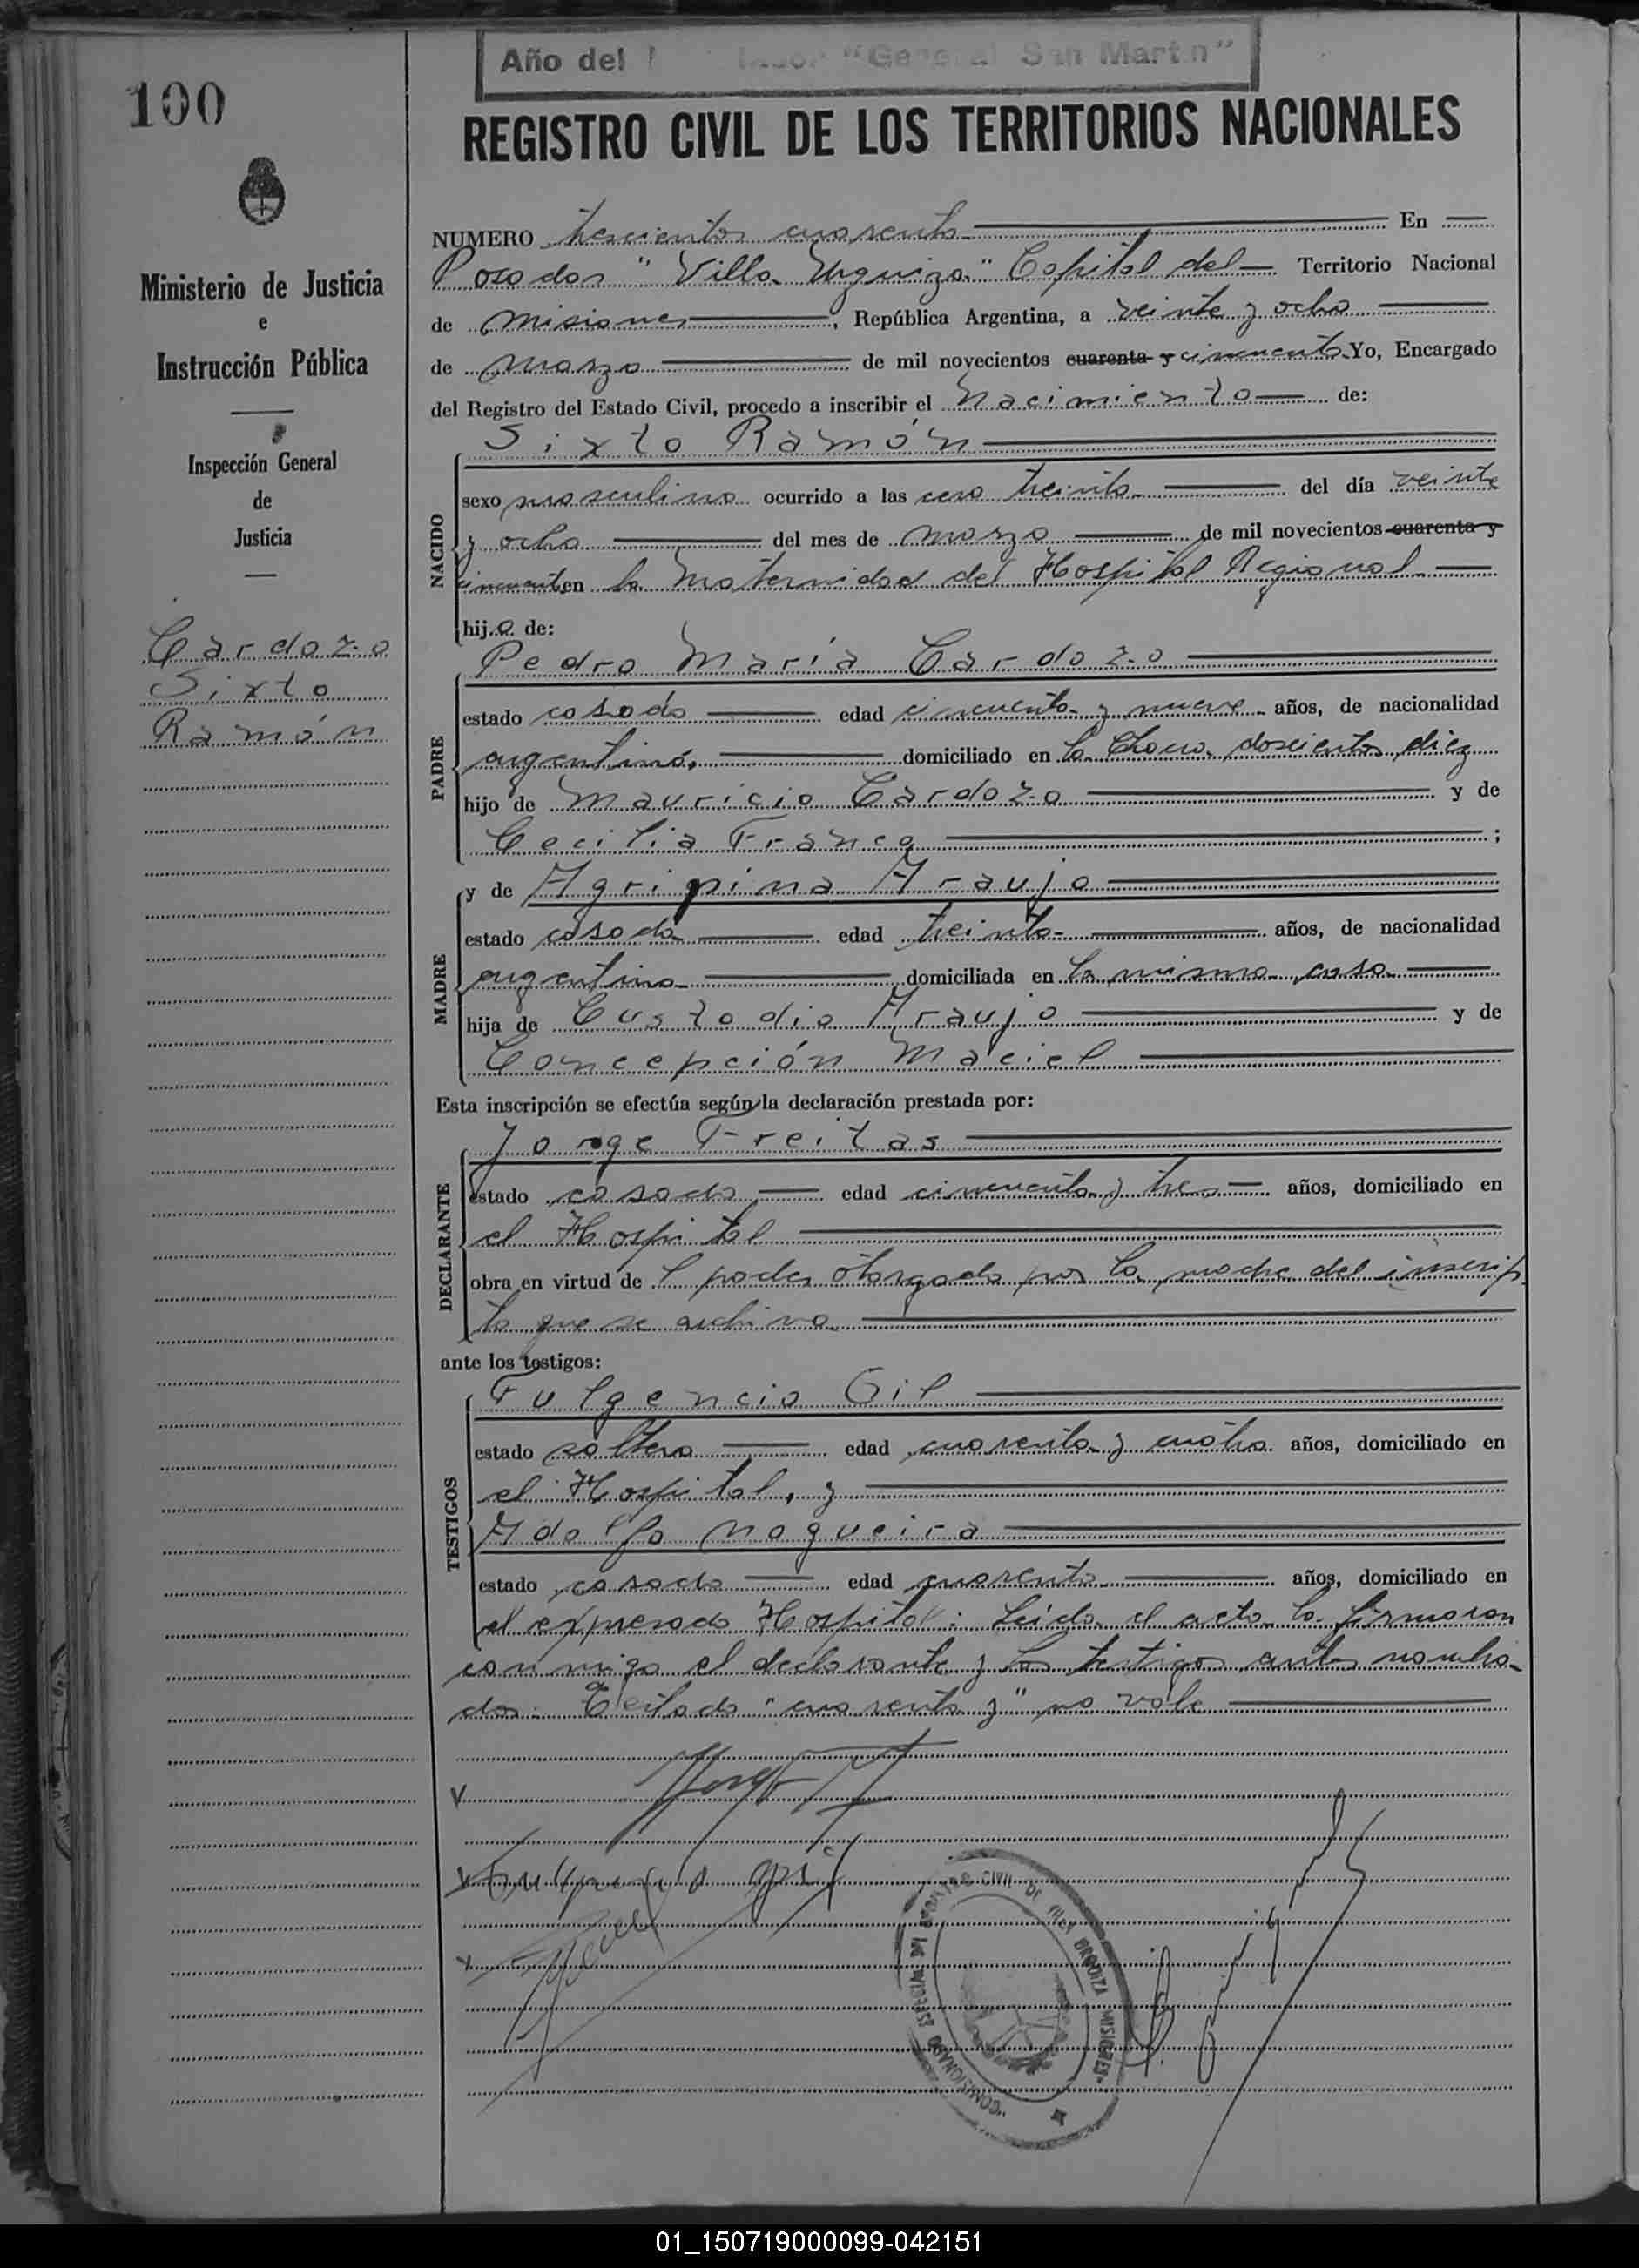 Año del Libertador "General San Martín"
100
REGISTRO CIVIL DE LOS TERRITORIOS NACIONALES
Ministerio de Justicia
e
Instrucción Pública
Inspección General
de
Justicia
Cardozo
Sixto
Ramón
NUMERO trescientos cuarenta En
Posadas "Villa Urquiza" Capital del Territorio Nacional
de Misiones, República Argentina, a veinte y ocho
de marzo de mil novecientos cuarenta y cincuenta Yo, Encargado
del Registro del Estado Civil, procedo a inscribir el Nacimiento de:
NACIDO
Sixto Ramón
sexo masculino ocurrido a las cero treinta del día veinte
y ocho del mes de marzo de mil novecientos cuarenta y
cincuenta en la Maternidad del Hospital Regional
hij.o de:
PADRE
Pedro María Cardozo
estado casado edad cincuenta y nueve años, de nacionalidad
argentino, domiciliado en la Chacra doscientos diez
hijo de Mauricio Cardozo y de
Cecilia Franco ;
MADRE
y de Agripina Araujo
estado casada edad treinta años, de nacionalidad
argentina domiciliada en la misma casa
hija de Custodio Araujo y de
Concepción Maciel
Esta inscripción se efectúa según la declaración prestada por:
DECLARANTE
Jorge Freitas
estado casado edad cincuenta y tres años, domiciliado en
el Hospital
obra en virtud de l poder otorgado por la madre del inscrip
to que se archiva
ante los testigos:
TESTIGOS
Fulgencio Gil
estado soltero edad cuarenta y cuatro años, domiciliado en
el Hospital, y
Adolfo Nogueira
estado casado edad cuarenta años, domiciliado en
el expresado Hospital: Leída el acta la firmaron
conmigo el declarante y los testigos antes nombra-
dos: Testado "cuarenta y" no vale
Fulgencio Gil
REGISTRO CIVIL DE VILLA URQUIZA MISIONES
COMISIONADO ESPECIAL
01_150719000099-042151